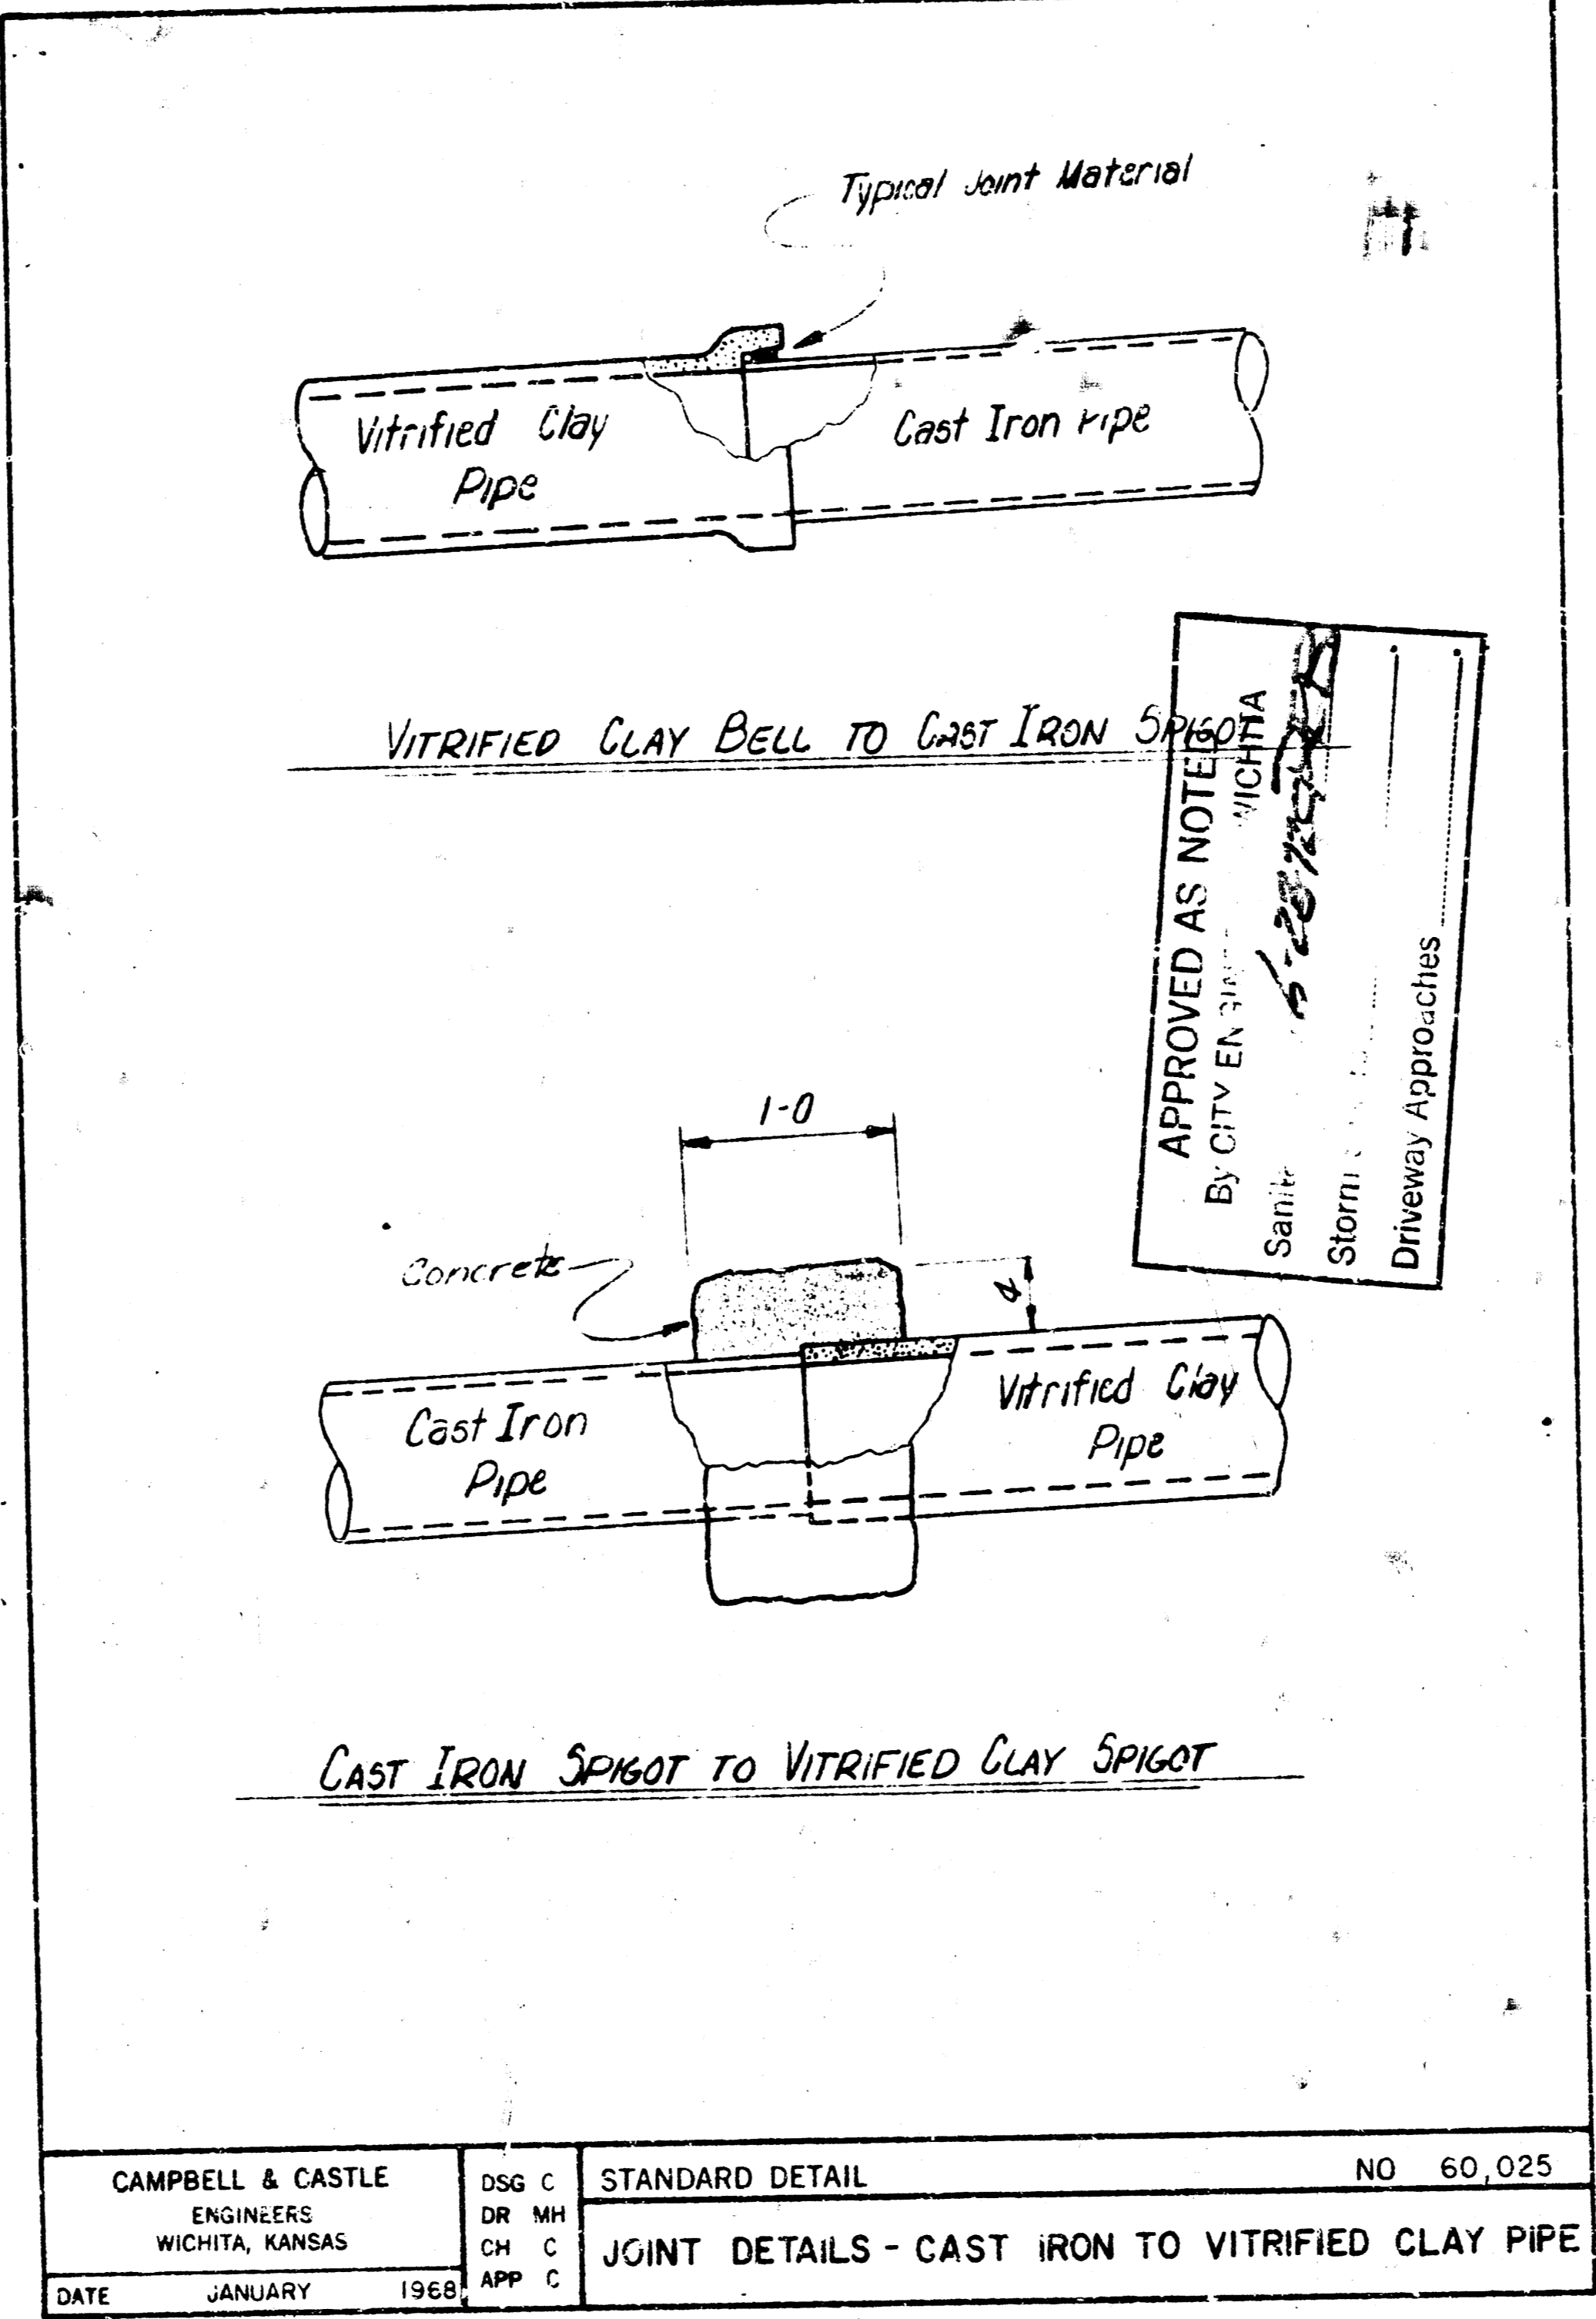 Typical Joint Material
Vitrified Clay
Pipe
Cast Iron Pipe
VITRIFIED CLAY BELL TO CAST IRON SPIGOT
APPROVED AS NOTED
By CITY WICHITA
Storm
Driveway Approaches
1-0
Concrete
4
Cast Iron
Pipe
Vitrified Clay
Pipe
CAST IRON SPIGOT TO VITRIFIED CLAY SPIGOT
CAMPBELL & CASTLE
ENGINEERS
WICHITA, KANSAS
DATE JANUARY 1968
DSG C
DR MH
CH C
APP C
STANDARD DETAIL NO 60,025
JOINT DETAILS - CAST IRON TO VITRIFIED CLAY PIPE